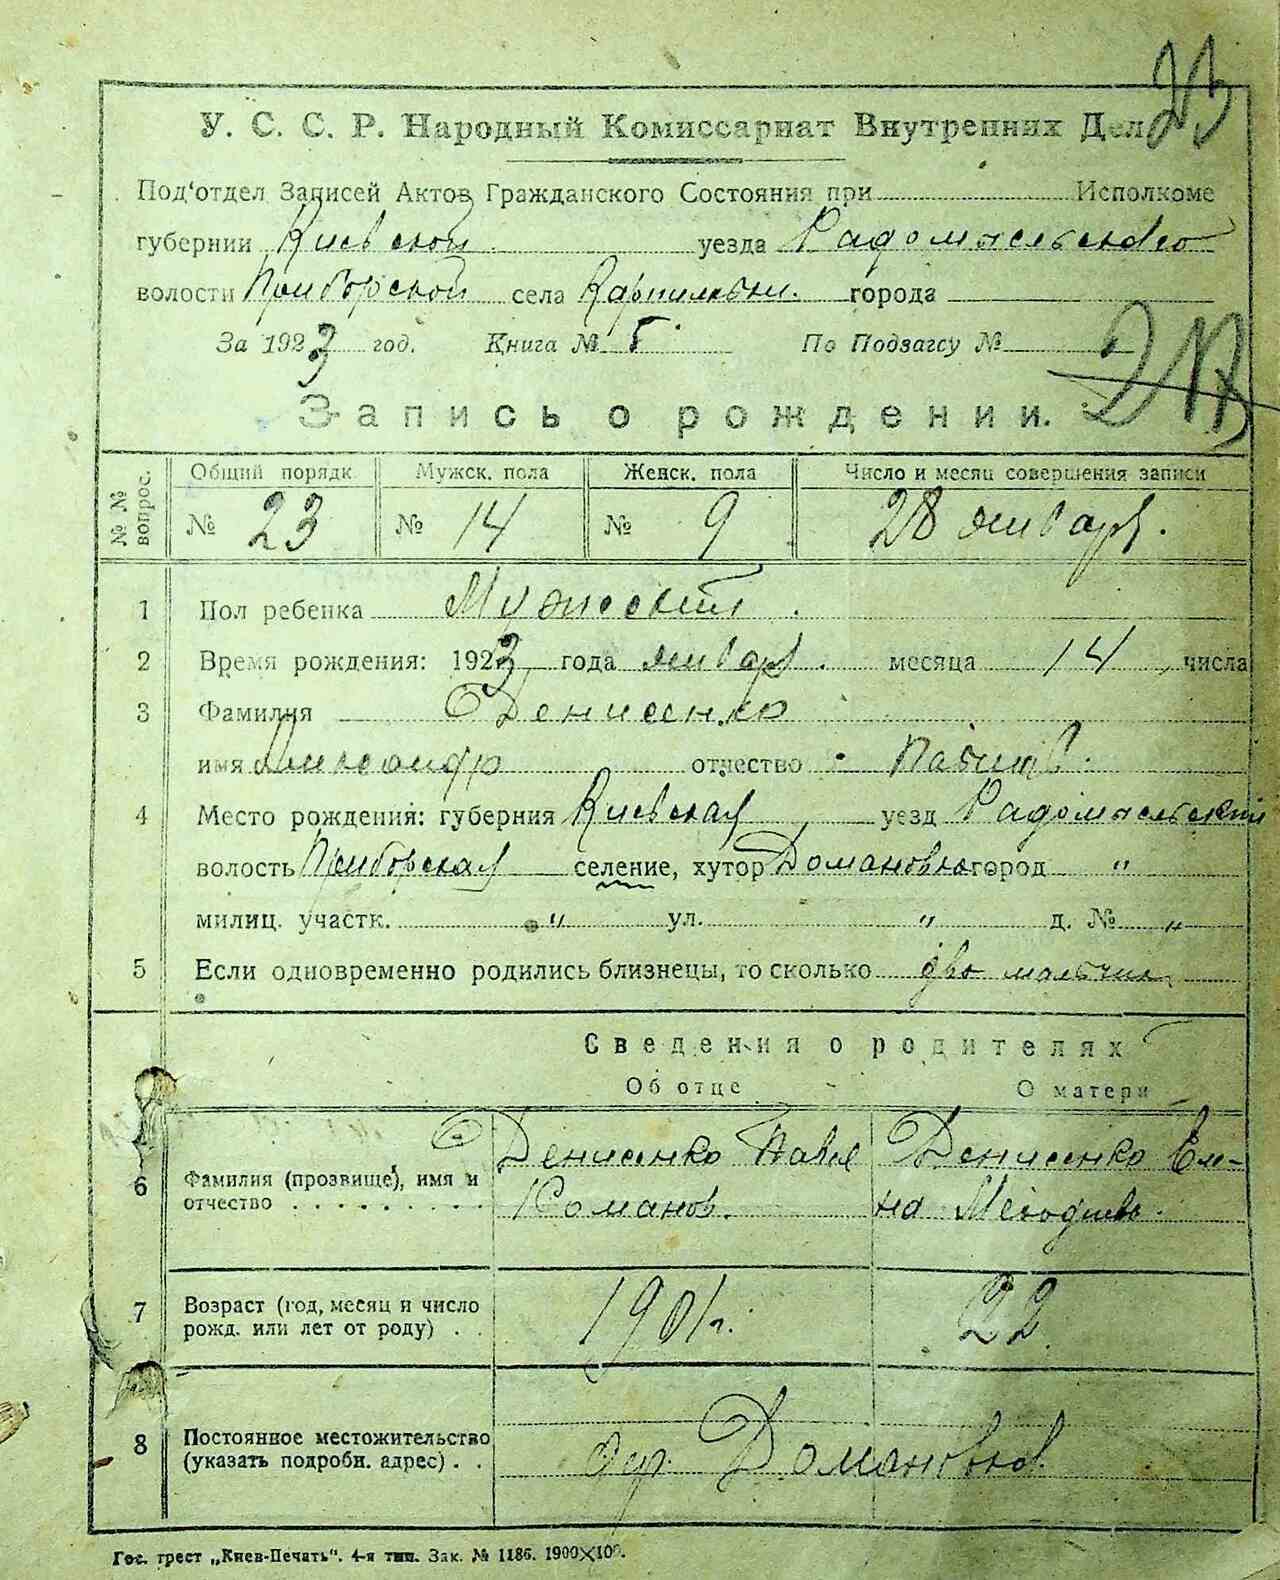 23
У. С. С. Р. Народный Комиссариат Внутренних Дел
Под'отдел Записей Актов Гражданского Состояния при Исполкоме
губернии Киевской уезда Радомысльского
волости Приборской села Карпиловки. города
За 1923 год. Книга № По Подзагсу №
Запись о рождении.
№ № вопрос. Общий порядк Мужск. пола Женск. пола Число и месяц совершения записи
№ 23 № 14 № 9 28 января.
1 Пол ребенка Мужской.
2 Время рождения: 1923 года января. месяца 14 числа
3 Фамилия Денисенко
имя Александр отчество
4 Место рождения: губерния Киевская уезд Радомысльский
волость Приборская селение, хутор Домановка город "
милиц. участк. " ул. " д. № "
5 Если одновременно родились близнецы, то сколько два мальчик
Сведения о родителях
Об отце О матери
6 Фамилия (прозвище), имя и отчество . . . . . . . . .
Денисенко Павел
Романов.
Денисенко Еле-
на Мефодиев.
7 Возраст (год, месяц и число рожд. или лет от роду) . . 1901 г. 22
8 Постоянное местожительство (указать подробн. адрес) . . дер. Домановка
Гос. трест „Киев-Печать". 4-я тип. Зак. № 1186. 1900×100.